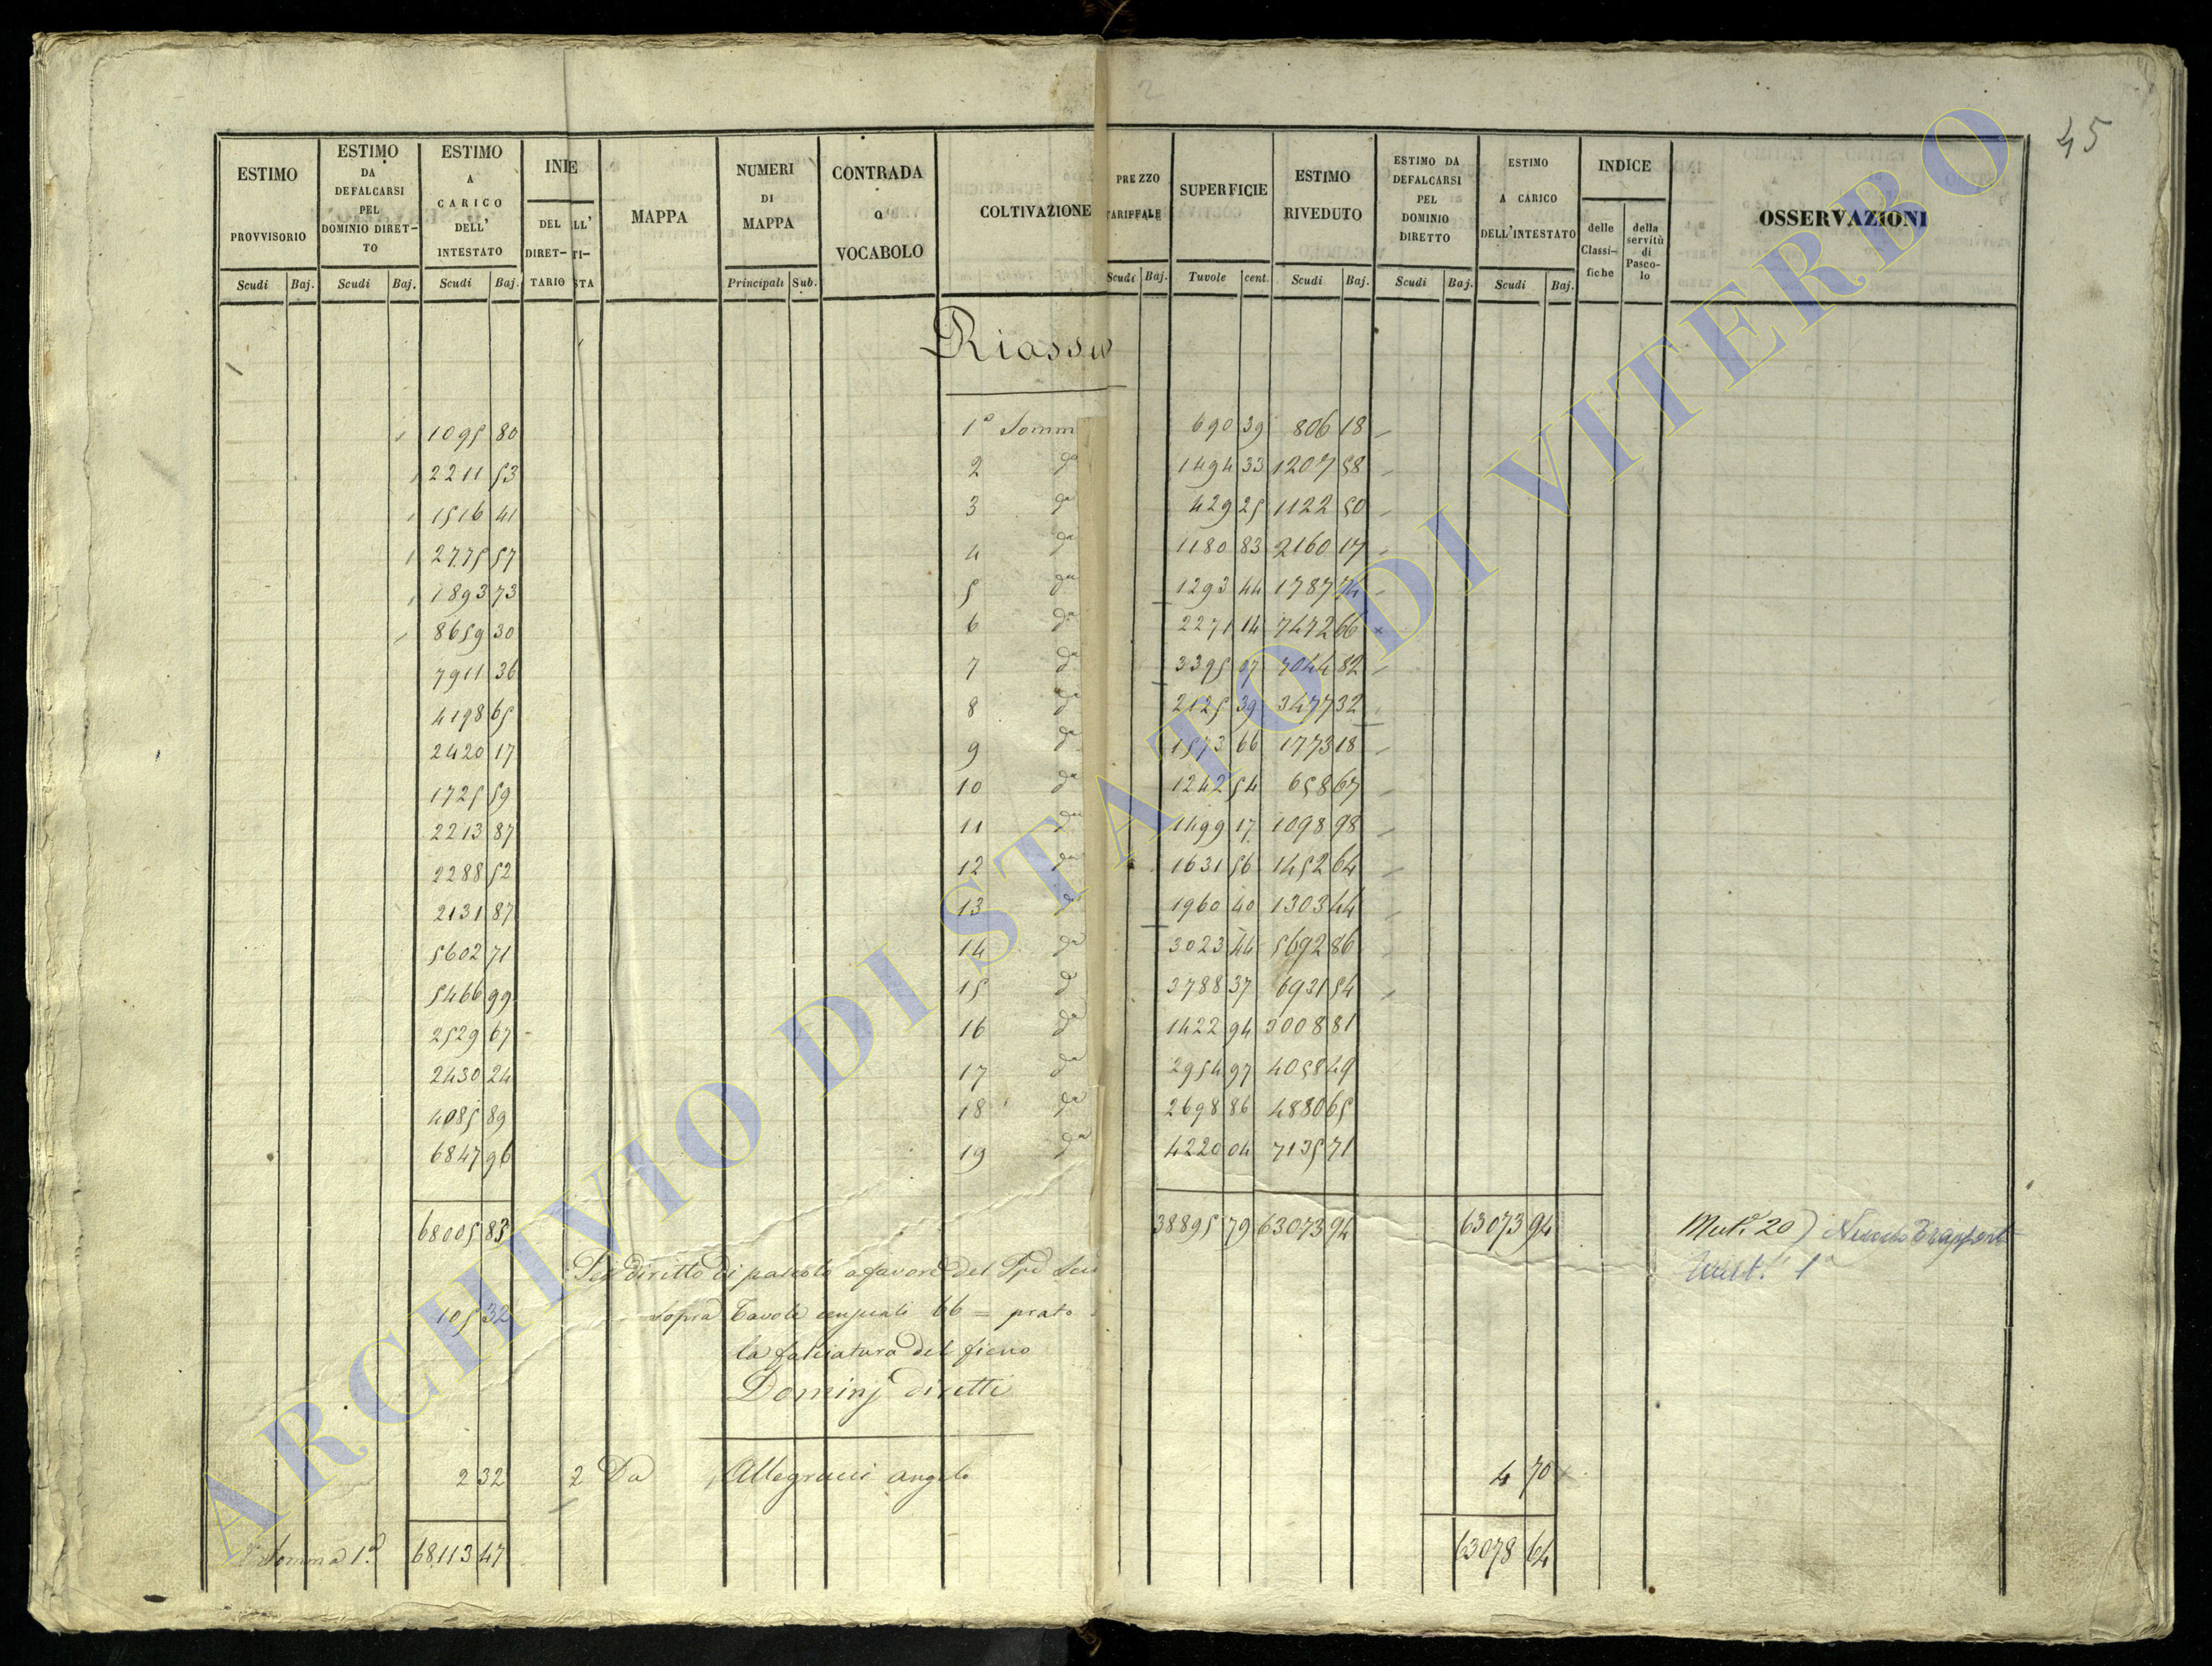 45
ESTIMO PROVVISORIO
ESTIMO DA DEFALCARSI PEL DOMINIO DIRET-TO
ESTIMO A CARICO DELL' INTESTATO
INIE
DEL DIRET-TARIO
LL' TI-STA
MAPPA
NUMERI DI MAPPA
CONTRADA o VOCABOLO
COLTIVAZIONE
PREZZO TARIFFALE
SUPERFICIE
ESTIMO RIVEDUTO
ESTIMO DA DEFALCARSI PEL DOMINIO DIRETTO
ESTIMO A CARICO DELL'INTESTATO
INDICE
delle Classi-fiche
della servitù di Pasco-lo
OSSERVAZIONI
Scudi Baj. Scudi Baj. Scudi Baj. Principali Sub. Scudi Baj. Tavole cent. Scudi Baj. Scudi Baj. Scudi Baj.
Riassu
1095 80 1ª Somm 690 39 806 18
2211 53 2 da 1494 33 1207 58
1516 41 3 da 429 25 1122 50
2775 57 4 da 1180 83 2160 17
1893 73 5 da 1293 44 1787 74
8659 30 6 da 2271 14 7472 66
7911 36 7 da 3395 07 7044 82
4198 65 8 da 2125 39 3477 32
2420 17 9 da 1573 66 1773 18
1725 59 10 da 1242 54 658 67
2213 87 11 da 1499 17 1098 98
2288 52 12 da 1631 56 1452 64
2131 87 13 da 1960 40 1303 44
5602 71 14 da 3023 44 5692 86
5466 99 15 d 3788 37 6931 54
2529 67 16 da 1422 94 3008 81
2430 24 17 da 2954 97 4058 49
4085 89 18 da 2698 86 4880 65
6847 96 19 da 4220 04 7135 71
68005 83 38895 79 63073 94 63073 94 Mut. 20)
Per diritto di pascolo a favore del
105 32 Sopra Tavole censuali 66 = prato
la falciatura del fieno
Dominj diretti
2 32 2 Da Allegrucci Angelo 4 70
Somma 1ª 68113 47 63078 64
ARCHIVIO DI STATO DI VITERBO